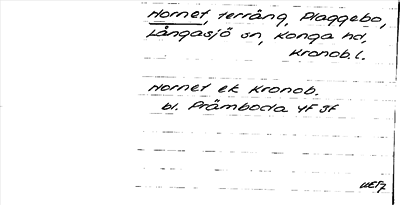 Hornet, terräng, Plaggebo,
Långasjö sn, Konga hd,
Kronob.l.
Hornet ek Kronob.
bl. Främboda 4F 3f